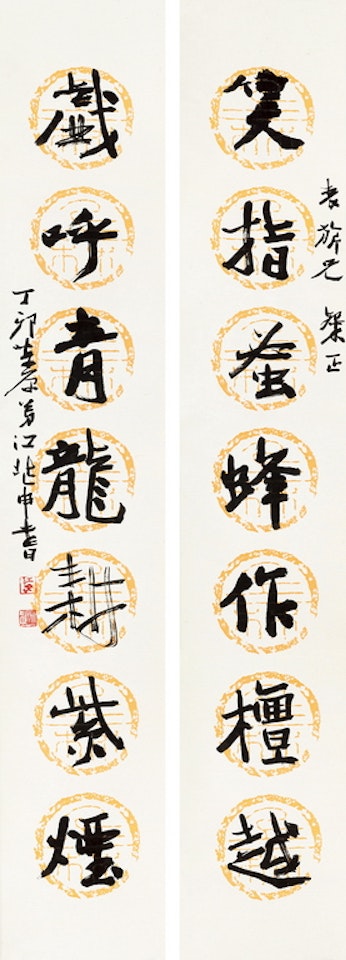 笑指蜜蜂作檀越
兄 粲正
戲呼青龍耕紫煙
丁卯 弟江兆申書